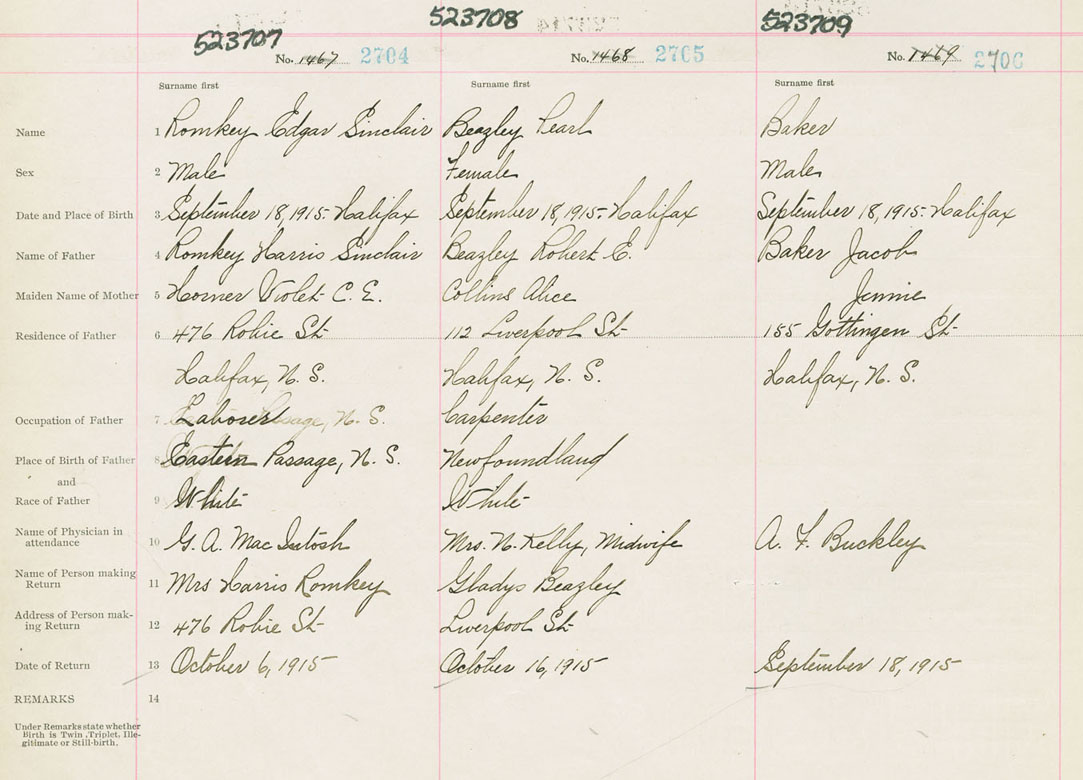 523707 523708 523709
No. 1467 2704 No. 1468 2705 No. 1469 2706
Surname first Surname first Surname first
Name 1 Romkey Edgar Sinclair Beazley Pearl Baker
Sex 2 Male Female Male
Date and Place of Birth 3 September 18, 1915-Halifax September 18, 1915-Halifax September 18, 1915-Halifax
Name of Father 4 Romkey Harris Sinclair Beazley Robert E. Baker Jacob
Maiden Name of Mother 5 Horner Violet C. E. Collins Alice Jennie
Residence of Father 6 476 Robie St 112 Liverpool St 155 Gottingen St
Halifax, N. S. Halifax, N. S. Halifax, N. S.
Occupation of Father 7 Laborer Passage, N. S. Carpenter
Place of Birth of Father 8 Eastern Passage, N. S. Newfoundland
and
Race of Father 9 White White
Name of Physician in
attendance 10 G. A. MacIntosh Mrs. N. Kelly, Midwife A. F. Buckley
Name of Person making
Return 11 Mrs Harris Romkey Gladys Beazley
Address of Person mak-
ing Return 12 476 Robie St Liverpool St
Date of Return 13 October 6, 1915 October 16, 1915 September 18, 1915
REMARKS 14
Under Remarks state whether
Birth is Twin, Triplet, Ille-
gitimate or Still-birth.